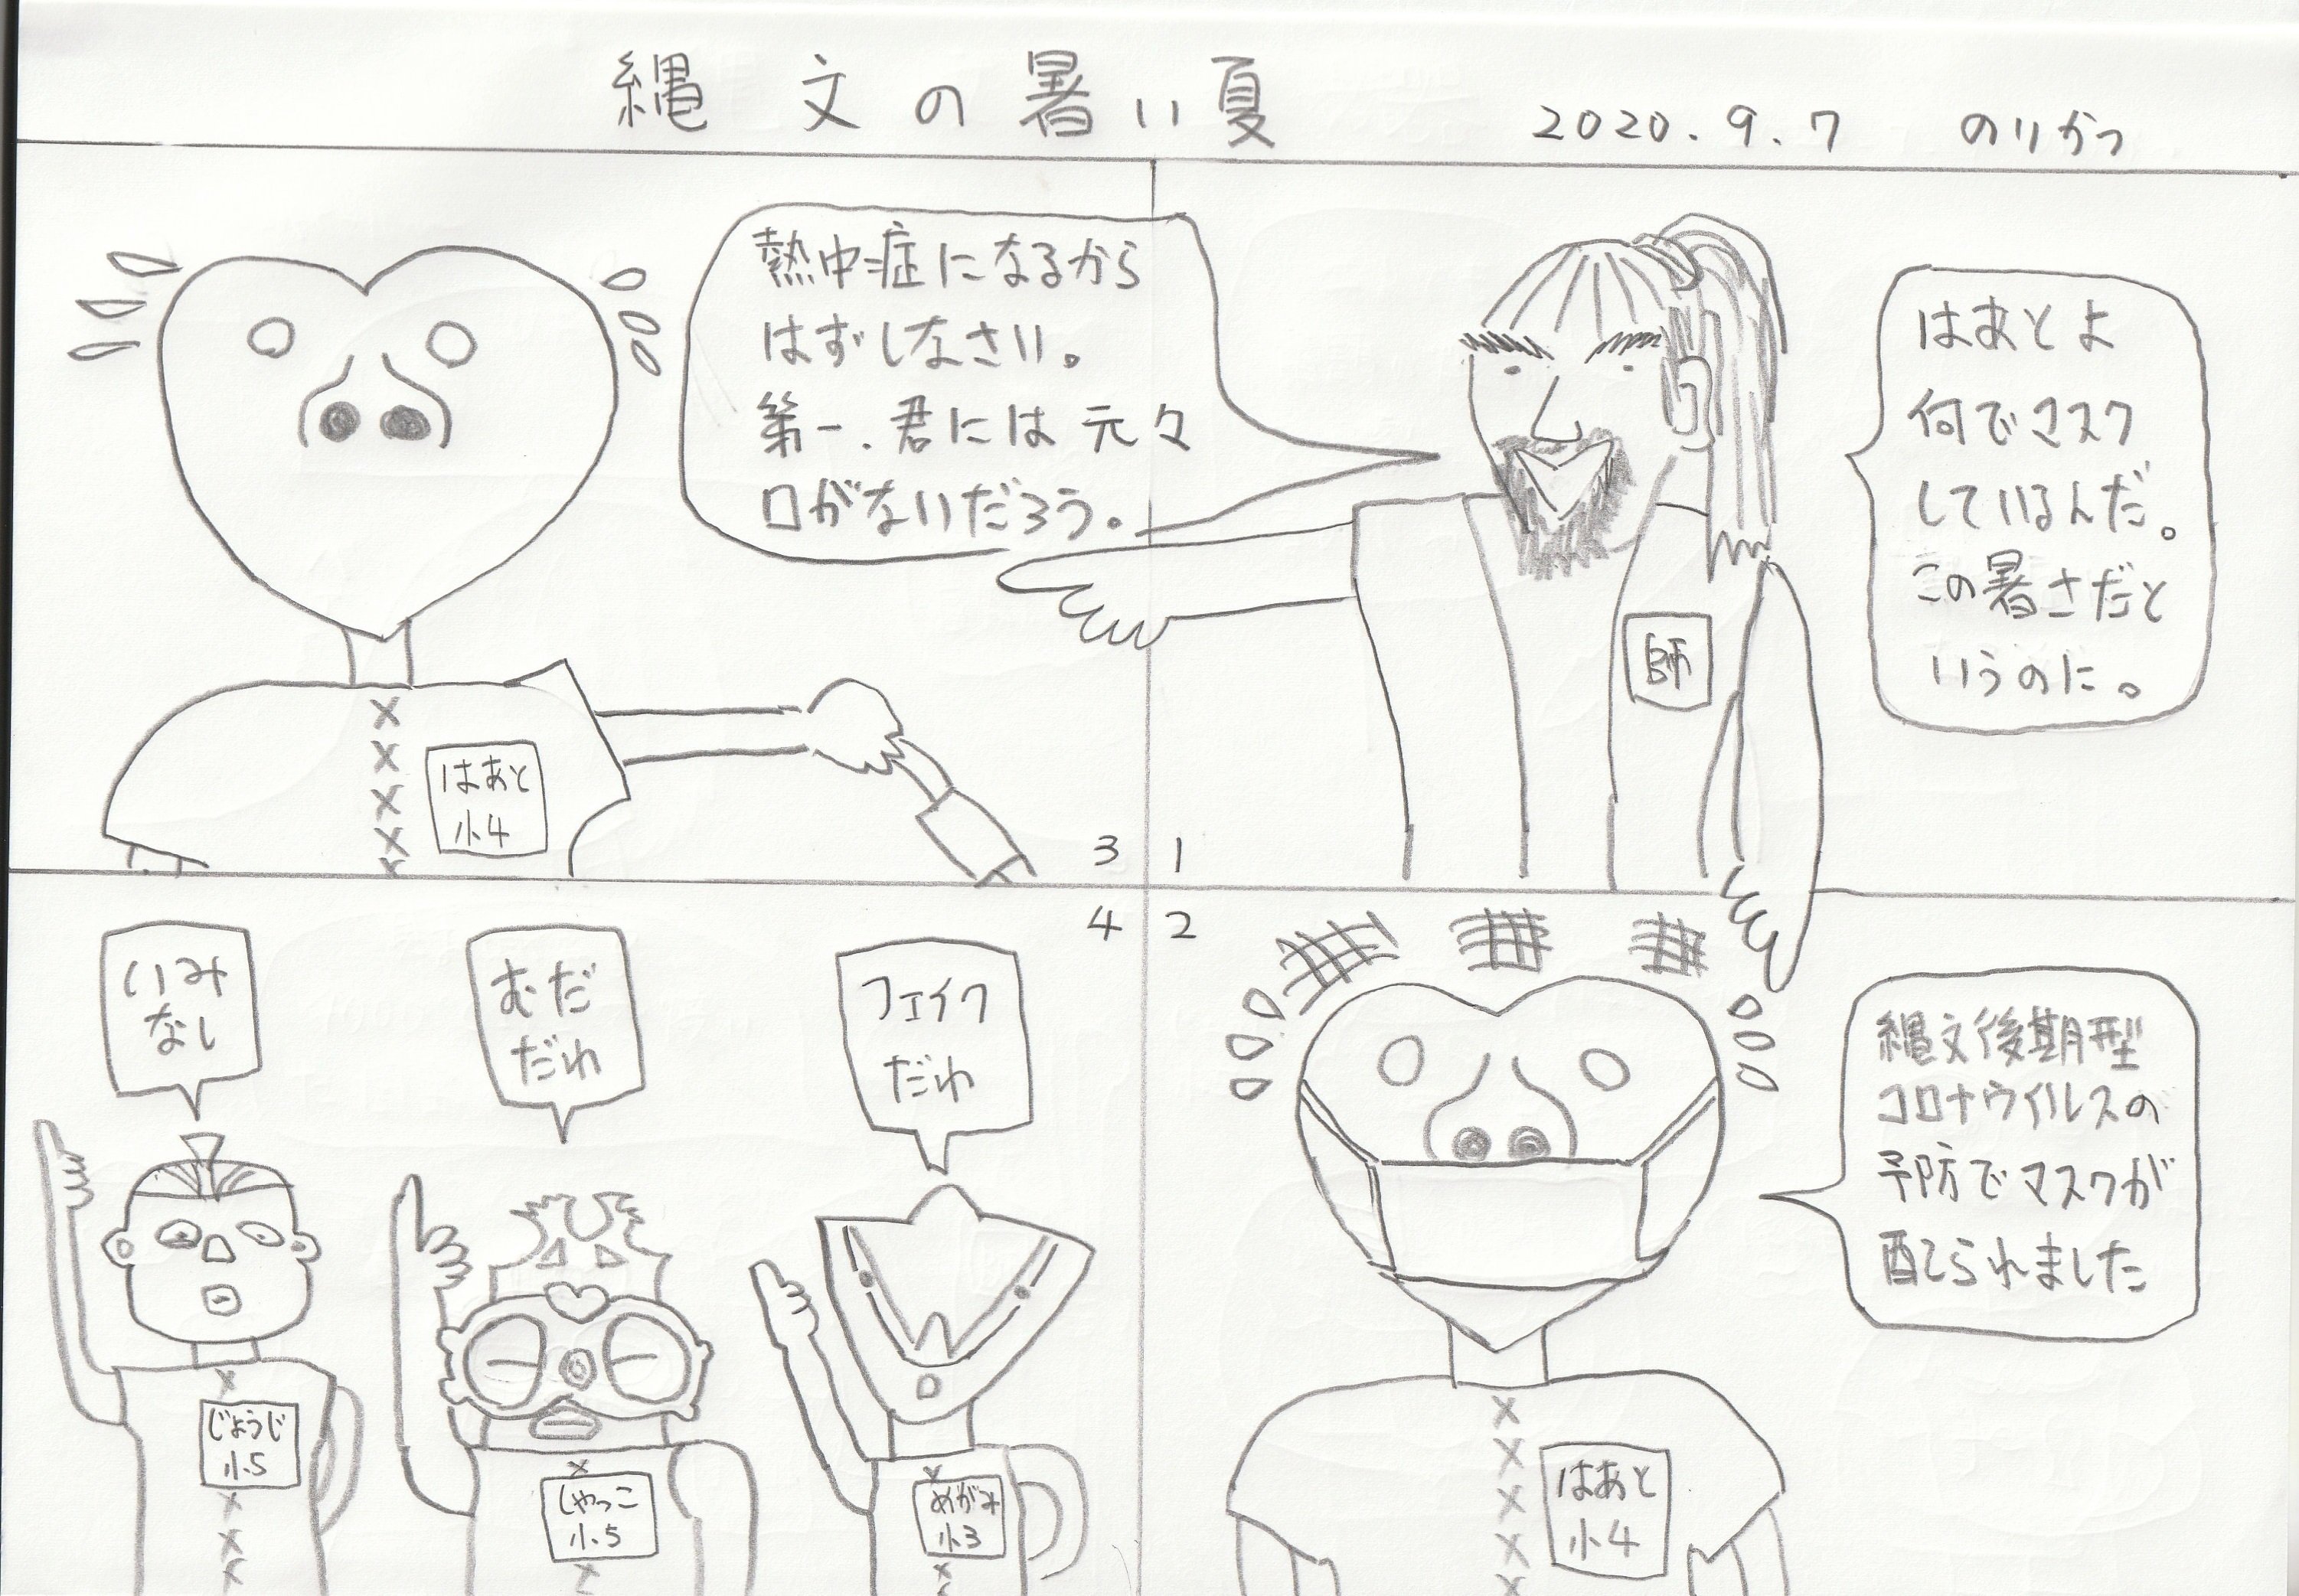 縄文の暑い夏
2020.9.7 のりかつ
はあとよ
何でマスク
しているんだ。
この暑さだと
いうのに。
師
1
2
縄文後期型
コロナウイルスの
予防でマスクが
配られました
はあと
小4
3
熱中症になるから
はずしなさい。
第一、君には元々
口がないだろう。
はあと
小4
4
フェイク
だわ
めがみ
小3
むだ
だわ
しゃっこ
小5
いみ
なし
じょうじ
小5